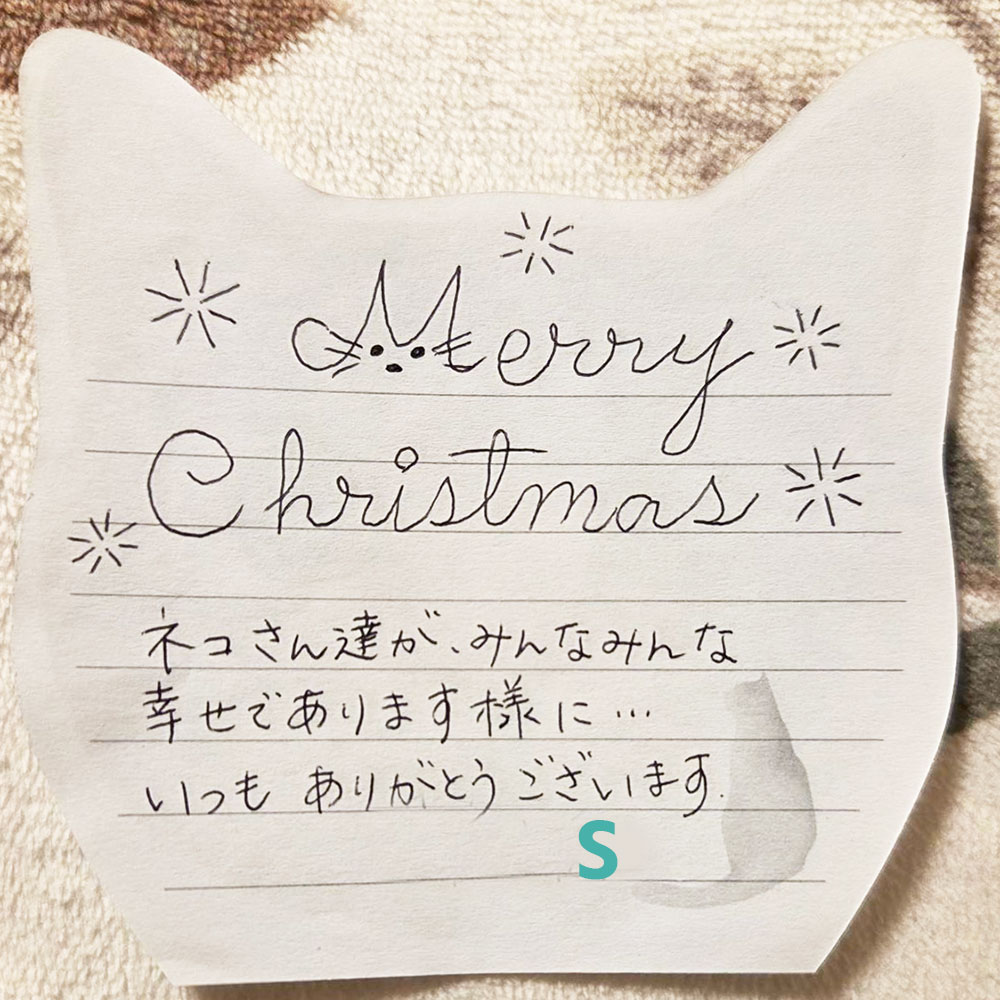 Merry
Christmas
ネコさん達が、みんなみんな
幸せであります様に…
いつも ありがとうございます.
S